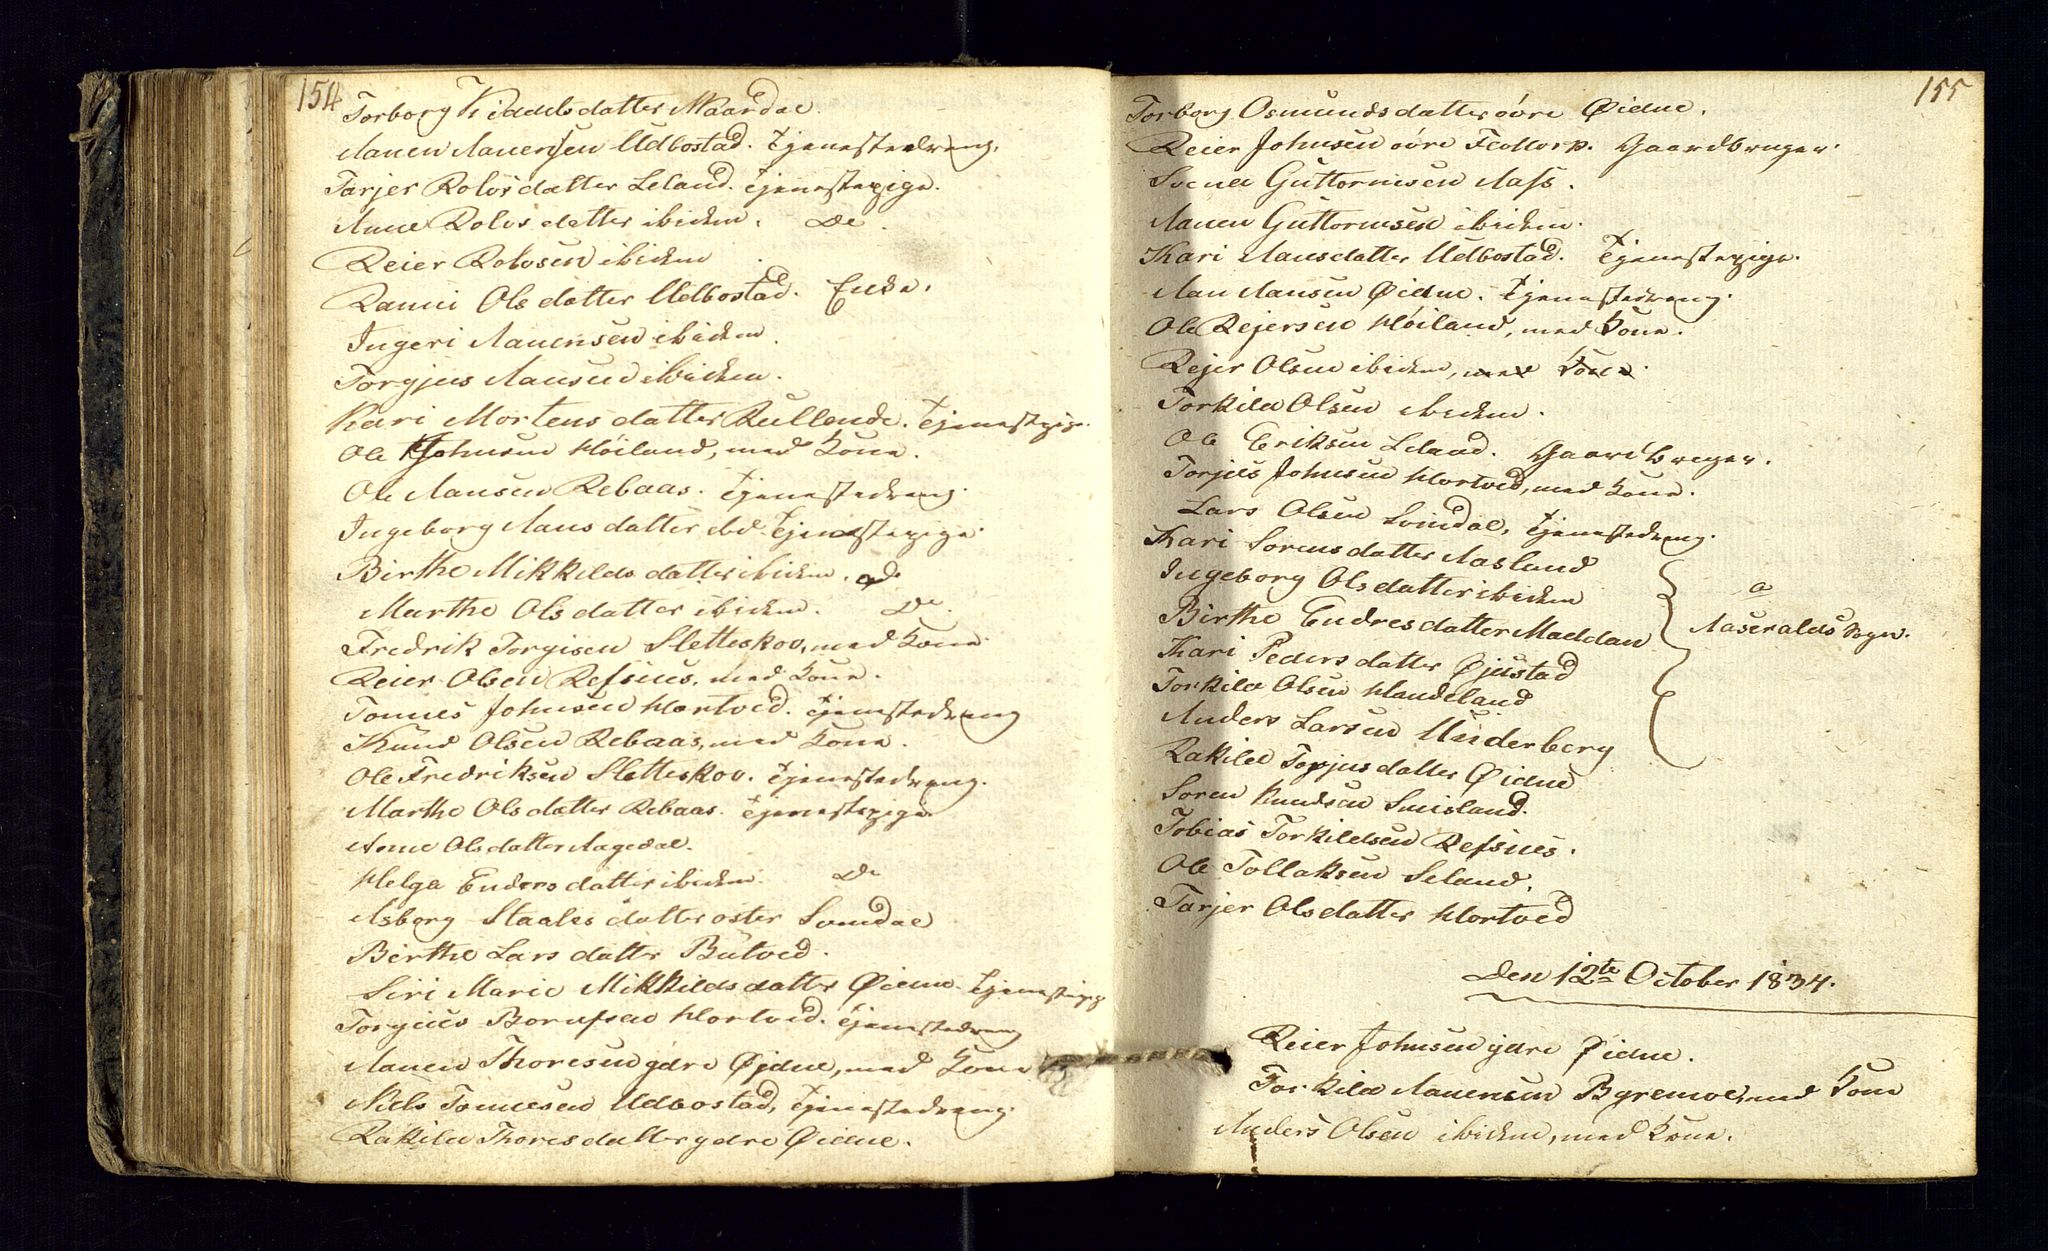 154
Torborg Kiddelsdatter Maardal.
Aanen Aanensen Udbostad. Tjenestedreng.
Tarjer Rolvsdatter Leland. Tjenestepige.
Anne Rolvsdatter ibidem. Do.
Reier Rolvsen ibidem
Ranni Olsdatter Udbostad. Enke.
Ingeri Aanensen ibidem.
Torgjus Aansen ibidem.
Kari Mortensdatter Rullende. Tjenestepige.
Ole Johnsen Høiland, med Kone.
Ole Aansen Rebaas. Tjenestedreng.
Ingeborg Aansdatter ibd. Tjenestepige.
Birthe Mikkildsdatter ibidem. do
Marthe Olsdatter ibidem. Do.
Fredrik Torgisen Sletteskov, med Kone.
Reier Olsen Refsnes, med Kone.
Tonnes Johnsen Hortved. Tjenestedreng
Knud Olsen Rebaas, med Kone.
Ole Fredriksen Sletteskov. Tjenestedreng.
Marthe Olsdatter Rebaas. Tjenestepige
Anne Olsdatter Aagedal.
Helga Endersdatter ibidem. Do
Asborg Staalesdatter oster Svindal
Birthe Larsdatter Butved.
Siri Marie Mikkildsdatter Øidne. Tjenestepig
Torgius Hortved. Tjenestedreng
Aanen Thoresen ydre Øjdne, med Kone
Niels Tonnesen Udbostad, Tjenestedreng.
Rakild Thoresdatter ydre Øidne.
155
Torborg Osmundsdatter øvre Øidne.
Reier Johnsen øvre Flottorp. Gaardbruger.
Svend Guttormsen Aass.
Aanen Guttormsen ibidem.
Kari Aansdatter Udbostad. Tjenestepige.
Aan Aansen Øidne. Tjenestedreng.
Ole Rejersen Høiland, med Kone.
Rejer Olsen ibidem, med Kone.
Torkild Olsen ibidem.
Ole Eriksen Leland. Gaardbruger.
Torjus Johnsen Hortved, med Kone.
Lars Olsen Svindal, Tjenestedreng.
Kari Sorensdatter Aasland
Ingeborg Olsdatter ibidem
Birthe Endresdatter Moeldan
Kari Pedersdatter Øjustad
Torkild Olsen Haudeland
Anders Larsen Underberg
a
Aaseralds Sogn.
Rakild Torjusdatter Øidne
Soren Knudsen Smisland.
Tobias Torkildsen Refsnes.
Ole Tollaksen Seland.
Tarjer Olsdatter Hortved
Den 12te October 1834.
Reier Johnsen ydre Øidne.
Torkild Aanensen Bgremoe, med Kone
Anders Olsen ibidem, med Kone.